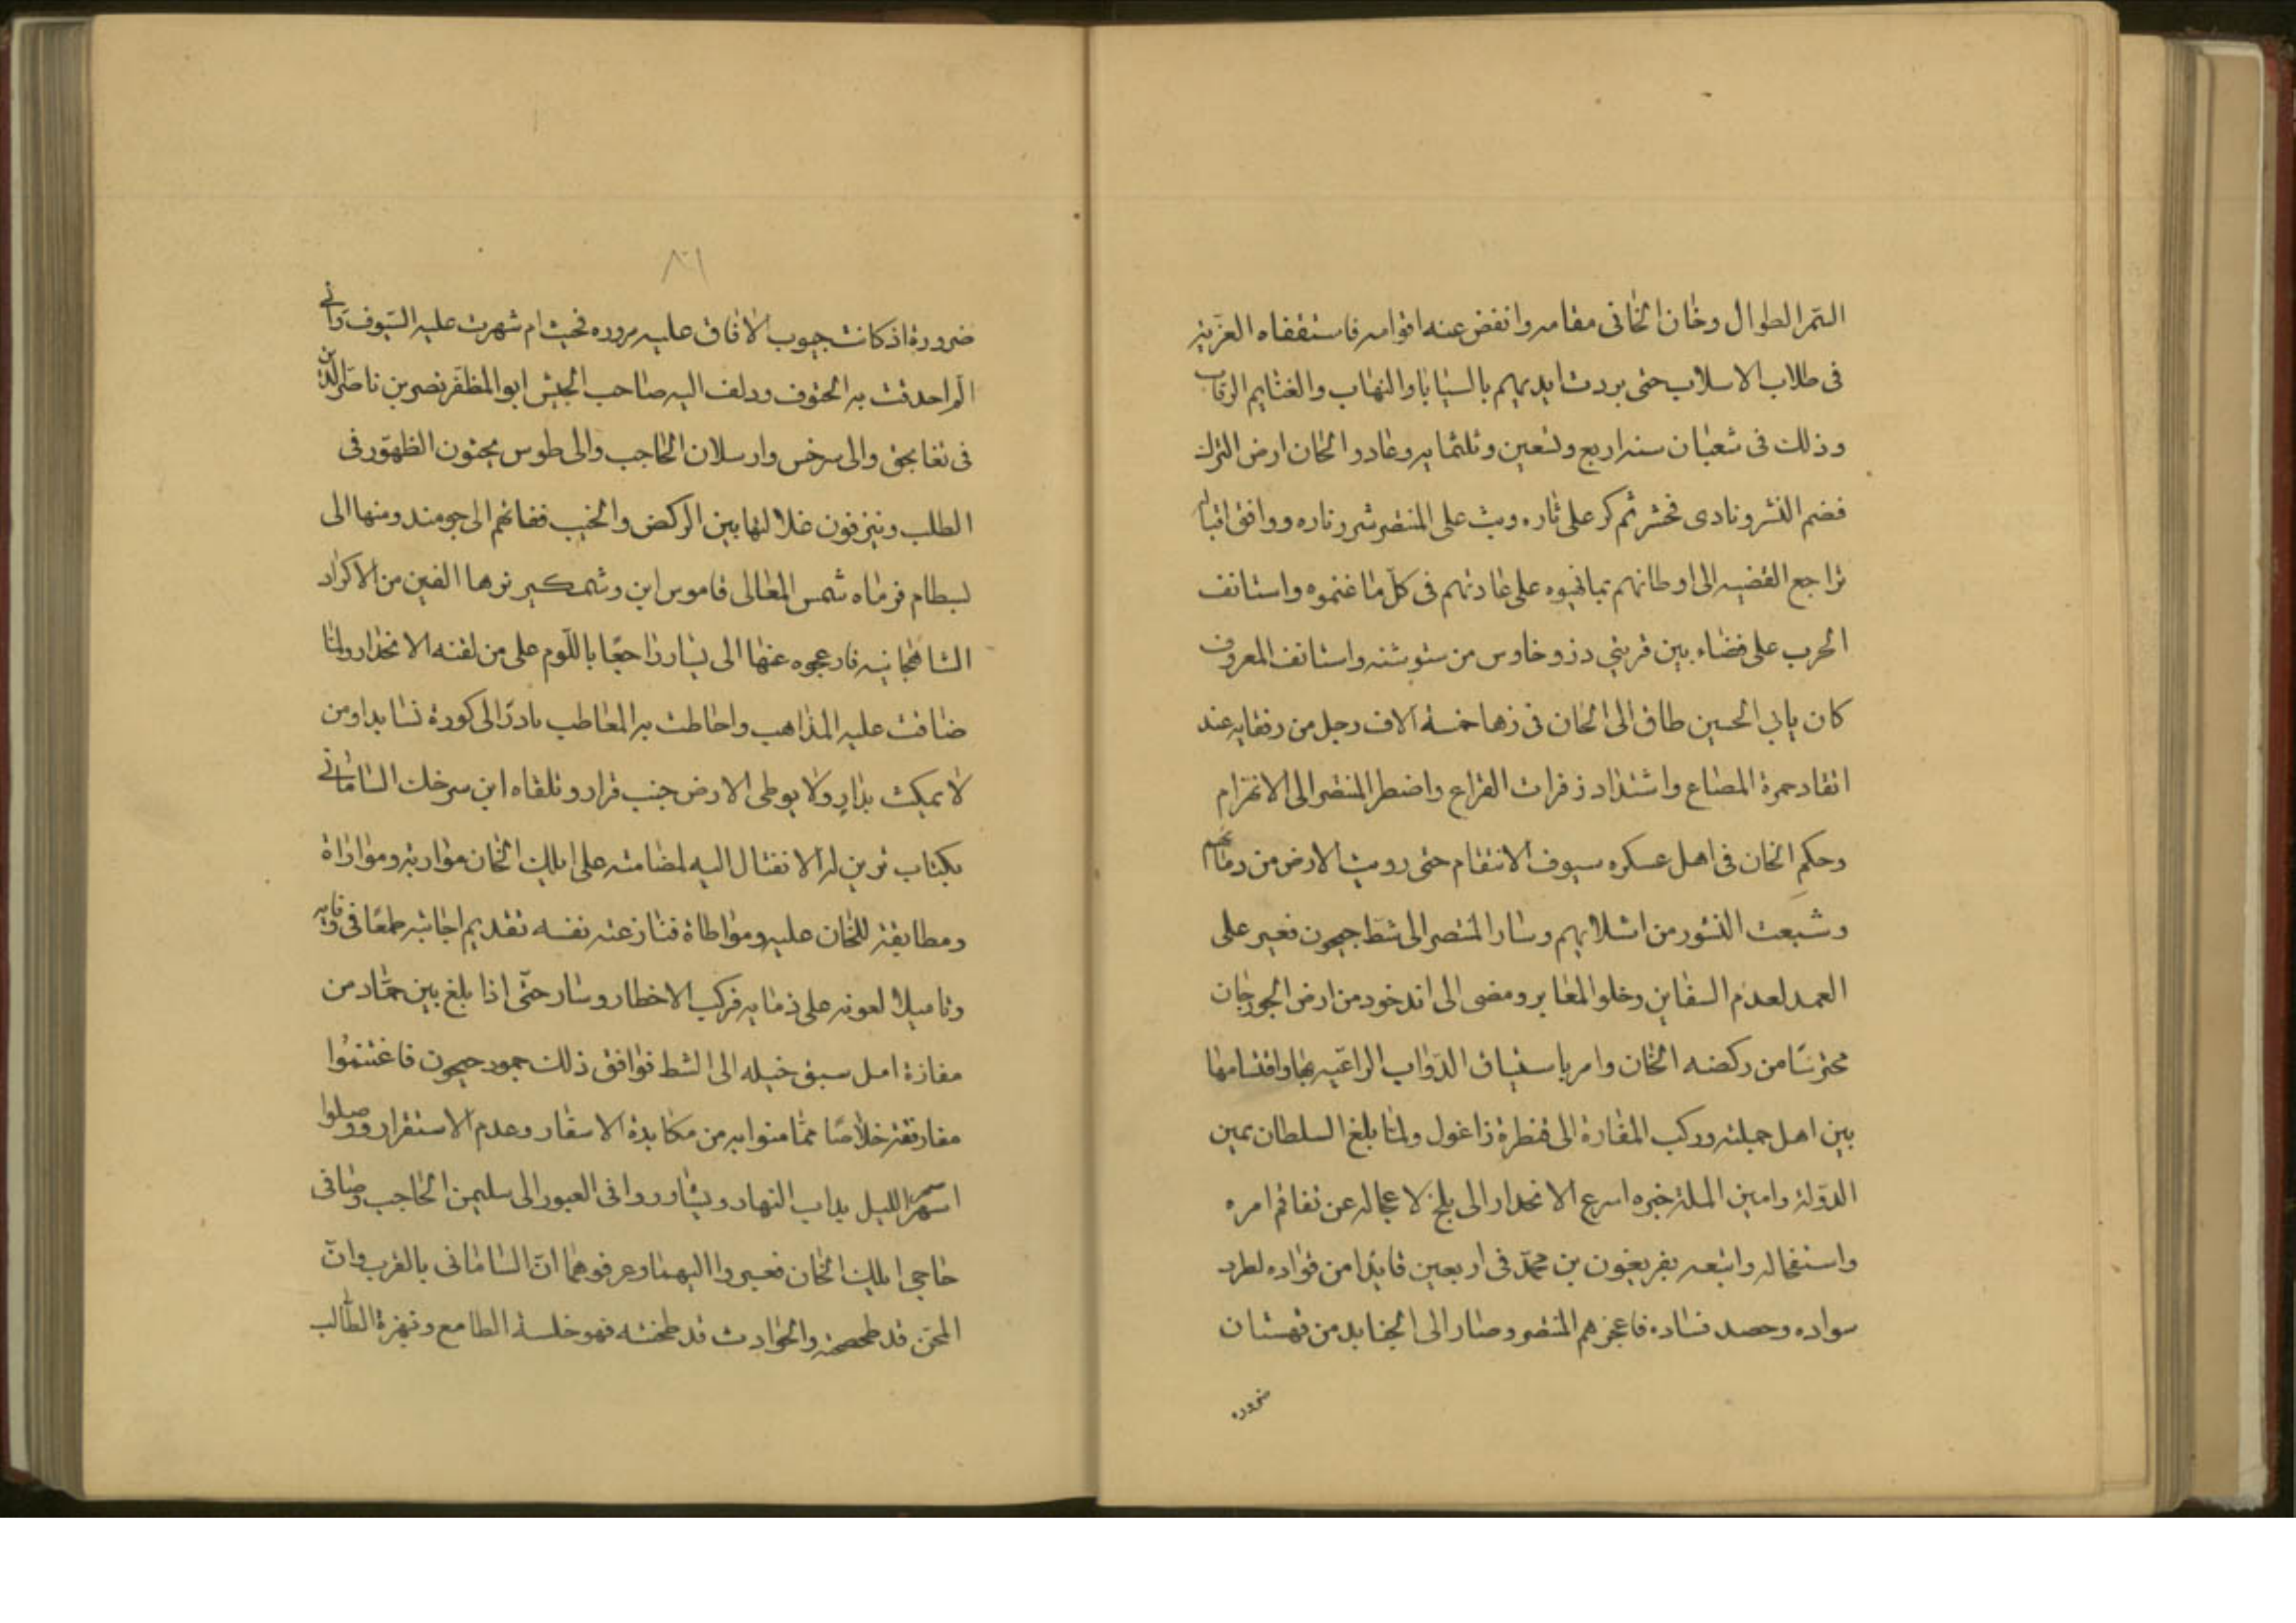 السّمر الطوال وخان الخانى مقامه وانفض عنه اقوامه فاستقفاه العزيه
فى طلاب الاسلاب حتى بردت ايديهم بالسبايا والنهاب والغنايم الرقاب
وذلك فى شعبان سنه اربع وتسعين وثلثمايه وعاد والخان ارض الترك
فضم النشر ونادى فحشر ثم كر على ثاره وبث على المنتصر شرر ناره ووافق اقباله
تراجع الغضيه الى اوطانهم بمانهبوه على عادتهم فى كلّ ما غنموه واستانف
الحرب على فضاء بين قريتي دزو خاوس من ستوشنه واستانف المعروف
كان بابي الحسين طاق الى الخان فى زها خمسة الاف رجل من رفقايه عند
اتقاد جمرة المصاع واشتداد زفرات القراع واضطر المنتصر الى الانهزام
وحكم الخان فى اهل عسكره سيوف الانتقام حتى رويت الارض من دمائهم
وشبعت النسور من اشلايهم وسار المنتصر الى شط جيحون فعبر على
العمد لعدم السفاين وخلو المعابر ومضى الى اندخود من ارض الجوزجان
محترسًا من ركضه الخان وامر باستياق الدّواب الراعيه بها واقتسامها
بين اهل جملته وركب المفازة الى قنطرة زاغول ولما بلغ السلطان يمين
الدّولة وامين الملة خبره اسرع الانحدار الى بلخ لاعجاله عن تفاقم امره
واستفحاله واتبعه بفريغون بن محمّد فى اربعين قايدا من قواده لطرد
سواده وحصد فساده فاعجزهم المنتصر وصار الى الجنابد من قهستان
ضروره
١٠٨
ضرورة اذ كانت جيوب الافاق عليه مزروره فحيث ام شهرت عليه السّيوف وانى
الم احدقت به الحتوف ودلف اليه صاحب الجيش ابو المظفر نصر بن ناصر الدين
فى تغابجق والى سرخس وارسلان الحاجب والى طوس يحثون الظهور فى
الطلب ونيزفون غلالتها بين الركض والخبب ففاتهم الى جومند ومنها الى
لبطام فرماه شمس المعالى قاموس ابن وشمكير بزها الفين من الاكراد
الشاهجانيه فارعجوه عنها الى بيار راجعًا باللّوم على من لقنه الانحدار ولما
ضاقت عليه المذاهب واحاطت به المعاطب بادرّ الى كورة نسا بداومن
لا يمكث بدارٍ ولا يوطى الارض جنب قرار وتلقاه ابن سرخك السامانى
بكتاب تزين له الانفتال اليه لمضامته على ايلك الخان مواربه وموازاة
ومطابقة للخان عليه ومواطاة فنازعته نفسه تقديم اجابته طمعًا فى وفايه
وتاميلا لعونه على ذمايه فركب الاخطار وسار حتّى اذا بلغ بين حمّاد من
مفازة امل سبق خيله الى الشط فوافق ذلك جمود جيحون فاغتنمُوا
مفارقته خلاصًا ممّا منوا به من مكابدة الاسفار وعدم الاستقرار ووصلوا
اسهر الليل بداب النهار ويشاوروا فى العبور الى سليمن الحاجب وصافى
حاجي ايلك الخان فعبروا اليهما وعرفوهما انّ السامانى بالقرب وانّ
المحن قد طحصحته والحوادث قد طحنته فهو خلسة الطامع ونهزة الطّالب